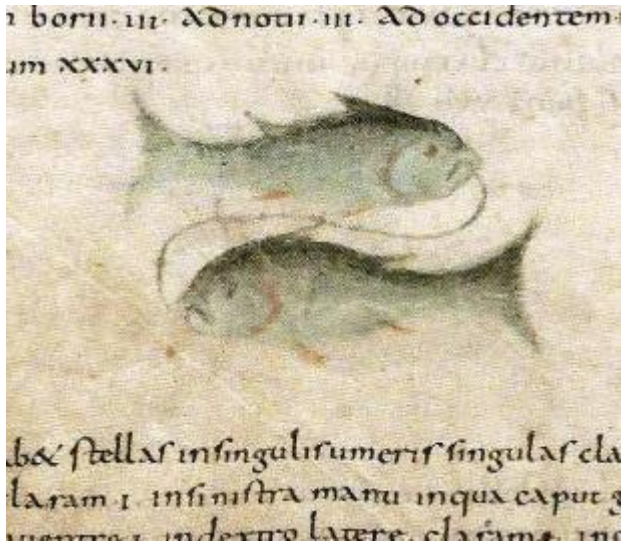 borii · III · Ad notū · III · Ad occidentem ·
um XXXVI ·
ab& stellas insingulisumeris singulas cla
laram · I · insinistra manu inqua caput g
ventre · I · indextro latere · claram ·